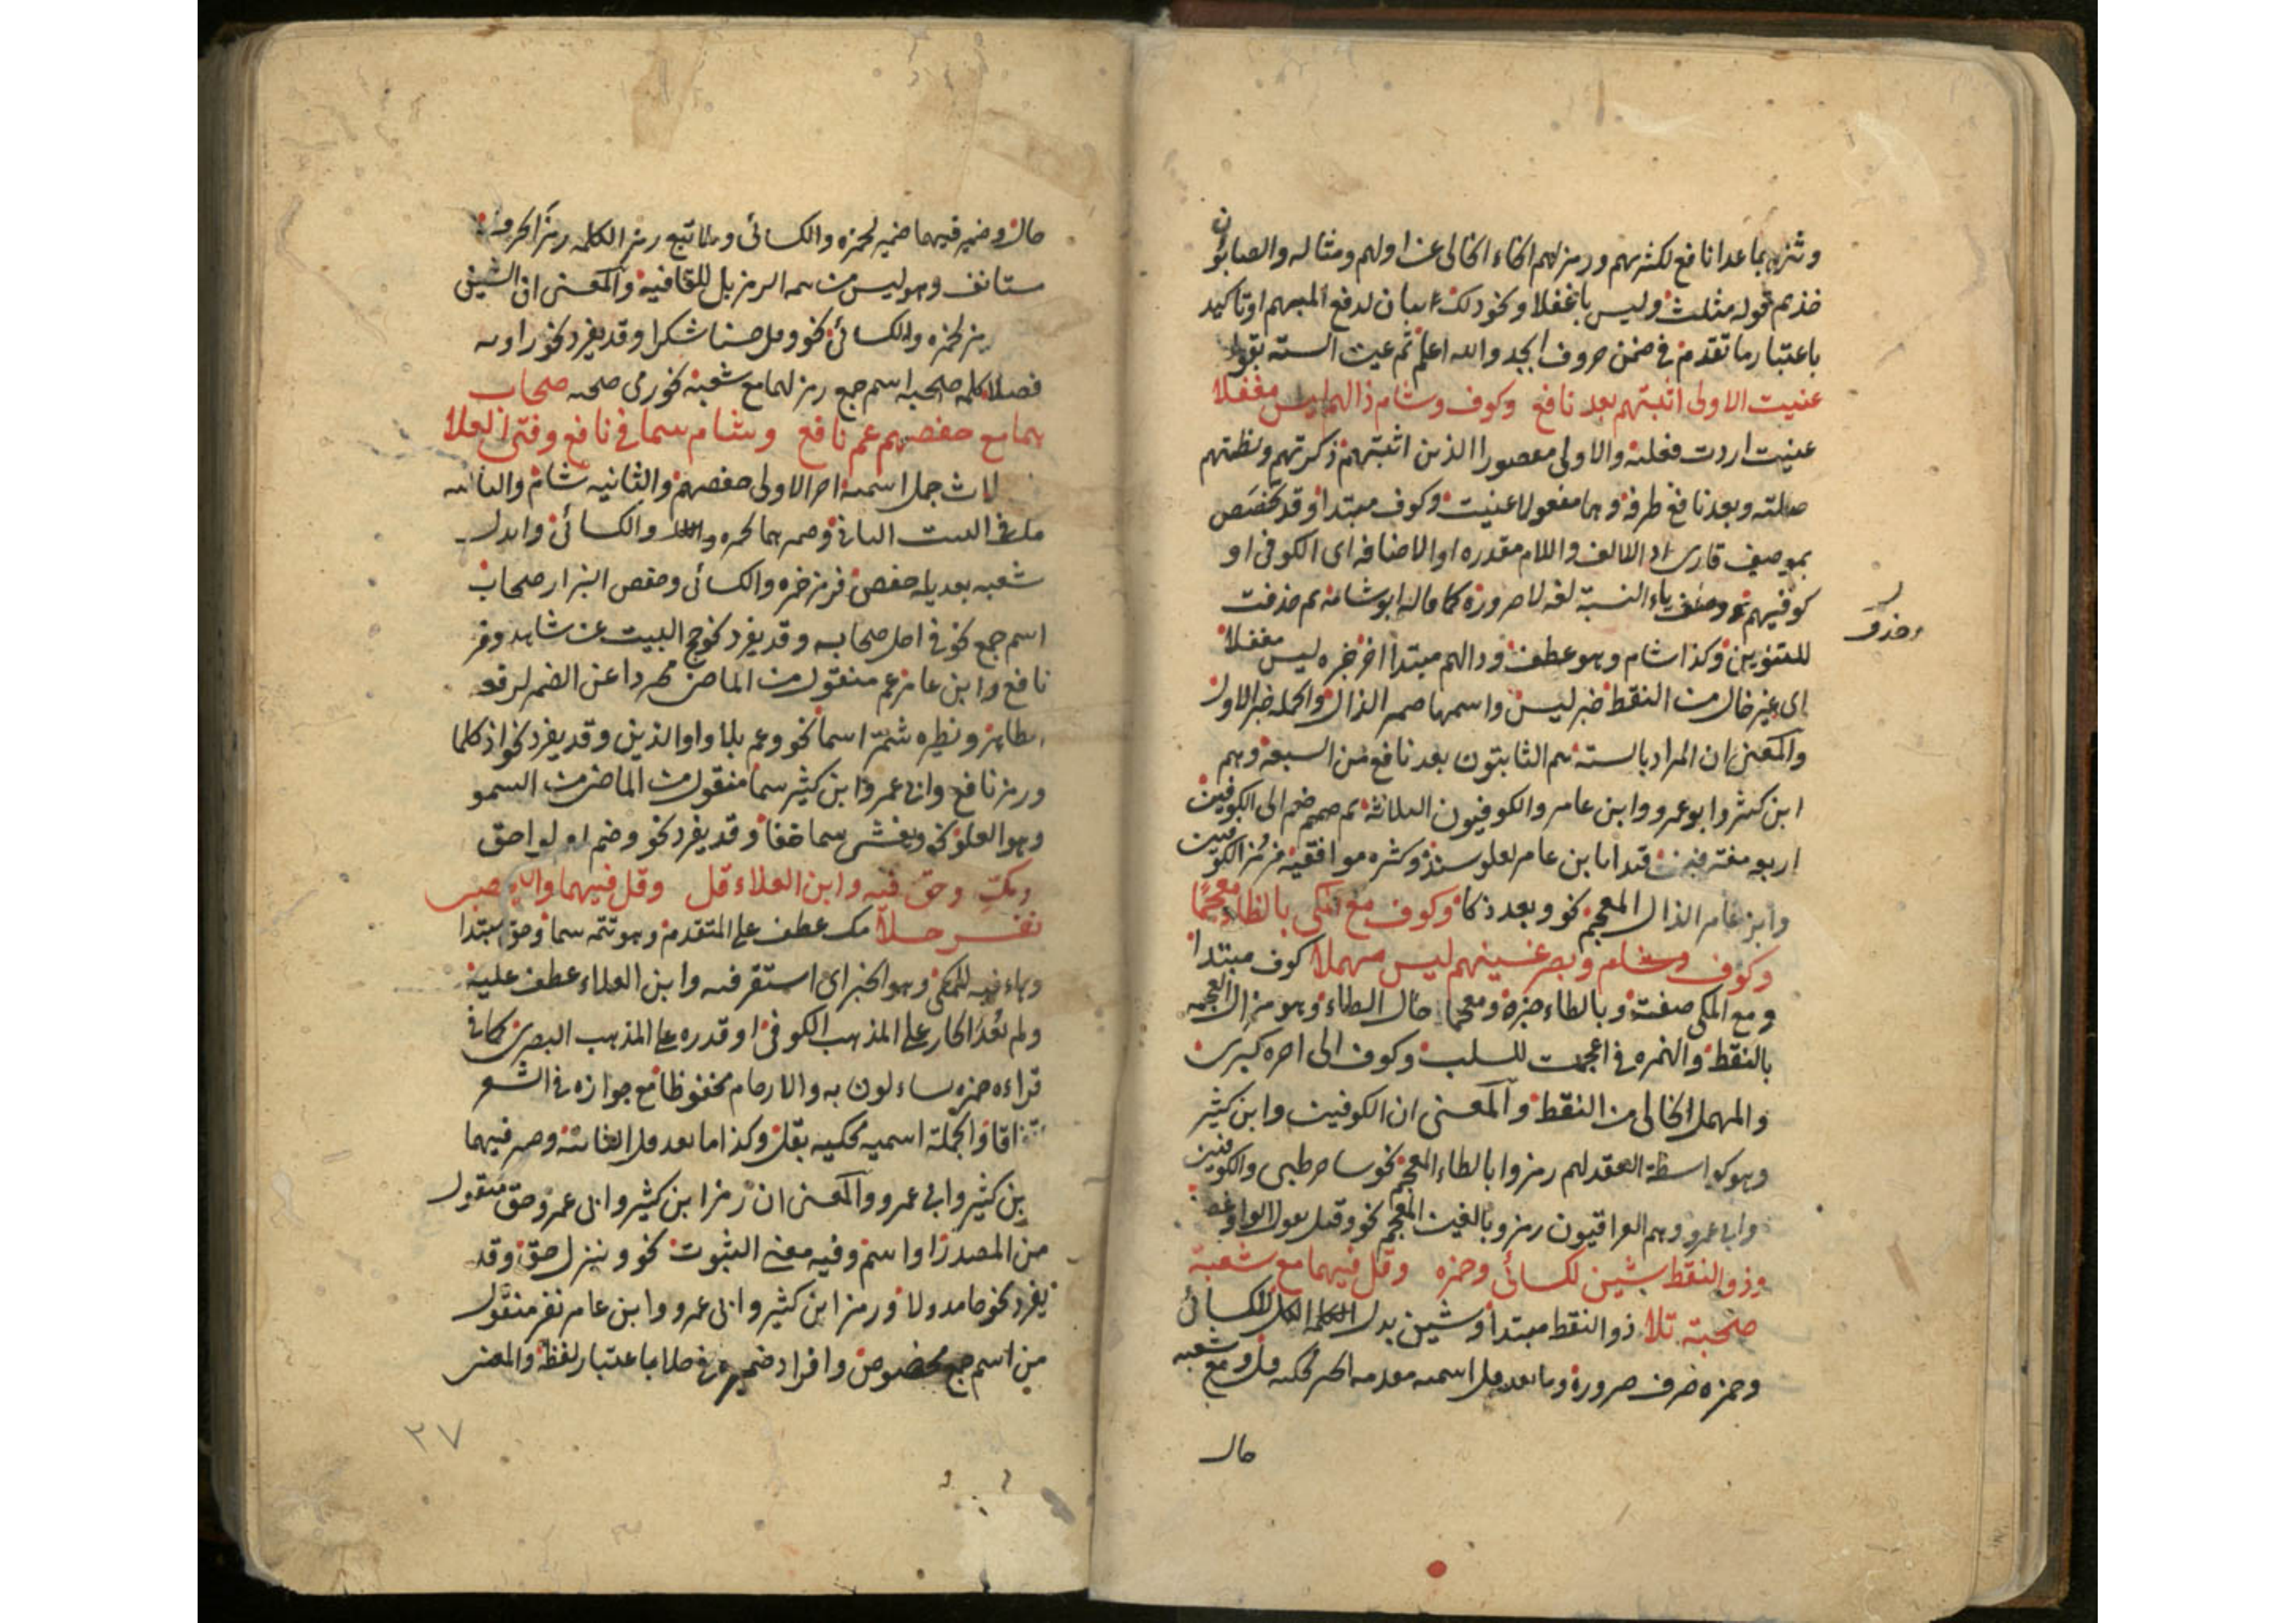 وثنى بما عدا نافع لكثرتهم ورمز لهم الخاء الخالى عن اولهم ومثاله والصابئون
خذهم قوله مثلث وليس باغفلا ونحو ذلك بيان لدفع المبهم او تاكيد
باعتبار ما تقدم فى ضمن حروف ابجد والله اعلم ثم عين الستة بقوله
عنيت الاولى اثبتهم بعد نافع وكوف وشام ذالهم ليس مغفلا
عنيت اردت فعلية والاولى مقصورا الذين اثبتهم ذكرتهم ونظمتهم
صلته وبعد نافع ظرفه وهما مفعولا عنيت وكوف مبتدا وقد تخصص
بموصوف قارى او الالف واللام مقدره او الاضافه اى الكوفى او
كوفيهم ياء النسبة لغه لا ضرورة كما قاله ابو شامة ثم حذفت
وحذف
للتنوين وكذا شام وهو عطف وذالهم مبتدا اخر خبره ليس مغفلا
اى غير خال من النقط خبر ليس واسمها ضمير الذال والجمله خبر الاول
والمعنى ان المراد بالسته هم الثابتون بعد نافع من السبعة وهم
ابن كثير وابو عمرو وابن عامر والكوفيون الثلاثة ثم ضم الى الكوفيين
وابن عامر الذال المعجم نحو وبعد ذكا وكوف مع المكى بالظاء معجما
وكوف وشام وبصر غينهم ليس مهملا كوف مبتدا
ومع المكى صفته وبالظاء خبره ومعجما حال الظاء وهو من العجمه
بالنقط والهمزه فى اعجمت للسلب وكوف الى اخره كبرى
والمهمل الخالى من النقط والمعنى ان الكوفيين وابن كثير
وهو كواسطة العقد لهم رمزوا بالظاء المعجم نحو والكوفيين
وابى عمرو وهم العراقيون رمزوا بالغين المعجم نحو وقبل يقول الواو غصن
وذو النقط شين لكسائى وحمزه وقل فيهما مع شعبة
صحبة تلا ذو النقط مبتدا وشين بدل الكسائى
وحمزه صرف ضرورة وما بعد قل اسميه مقدمه الخبر محكيه قل ومع شعبه
حال
حال وضمير فيهما ضمير لحمزه والكسائى ولما تبع رمز الكلمه رمز الحروف
ستانف وهو ليس من تتمه الرمز بل للقافية والمعنى ان الشين
رمز لحمزه والكسائى نحو وقل حسنا شكرا وقد يفرد نحو
صحبه اسم جمع رمز لهما مع شعبة نحو رمى صحبه صحاب
هما مع حفصهم عم نافع وشام سما فى نافع وفتى العلا
لاث جمل اسميه اخر الاولى حفصهم والثانيه شام
شعبه بعديله حفص فرمز حمزه والكسائى وحفص البزار صحاب
اسم جمع نحو فى اصل صحابه وقد يفرد نحو حج البيت عن شاهد
نافع وابن عامر عم منقول من الماضى مجردا عن الضمير
ونظيره شمر اسما نحو وعم بلا واو الذين وقد يفرد نحو
ورمز نافع وابى عمرو وابن كثير سما منقول من الماضى من السمو
وهو العلو نحو ويغشى سما خفا وقد يفرد نحو وضم
ومك وحق فيه وابن العلاء قل وقل فيهما واليحصبى
نفر حلا مك عطف على المتقدم وهو تتمه سما وحق مبتدا
وهاء فيه للمكى وهو الخبر اى استقر فيه وابن العلاء عطف عليه
ولم يعد الجار على المذهب الكوفى او قدره على المذهب البصرى كما فى
قراءه حمزه تساءلون به والارحام مخفوظا مع جوازه فى الشعر
اتفاقا والجملة اسميه محكيه بقل وكذا ما بعد قل الثانية وضمير فيهما
بن كثير وابى عمرو والمعنى ان رمز ابن كثير وابى عمرو حق منقول
من المصدر او اسم وفيه معنى الثبوت نحو وينزل حق وقد
يفرد نحو ورمز ابن كثير وابى عمرو وابن عامر نفر منقول
من اسم جمع مخصوص وافراد ضميره فى حلا باعتبار لفظه والمعنى
٢٧